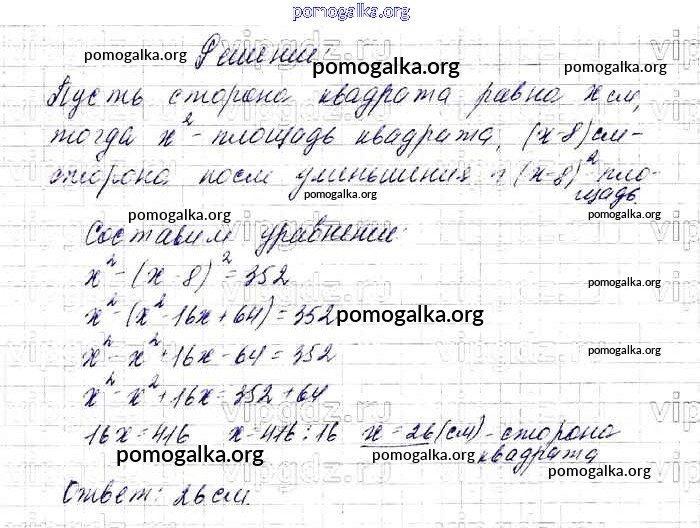 pomogalka.org
pomogalka.org Решение: pomogalka.org pomogalka.org
Пусть сторона квадрата равна x см,
тогда x² - площадь квадрата, (x-8) см -
сторона после уменьшения и (x-8)² пло-
pomogalka.org щадь.
pomogalka.org pomogalka.org
Составим уравнение:
x² - (x-8)² = 352
pomogalka.org
x² - (x² - 16x + 64) = 352 pomogalka.org
x² - x² + 16x - 64 = 352 pomogalka.org
x² - x² + 16x = 352 + 64
16x = 416 x = 416 : 16 x = 26 (см) - сторона
pomogalka.org pomogalka.org квадрата
pomogalka.org
Ответ: 26 см.
vipgdz.ru